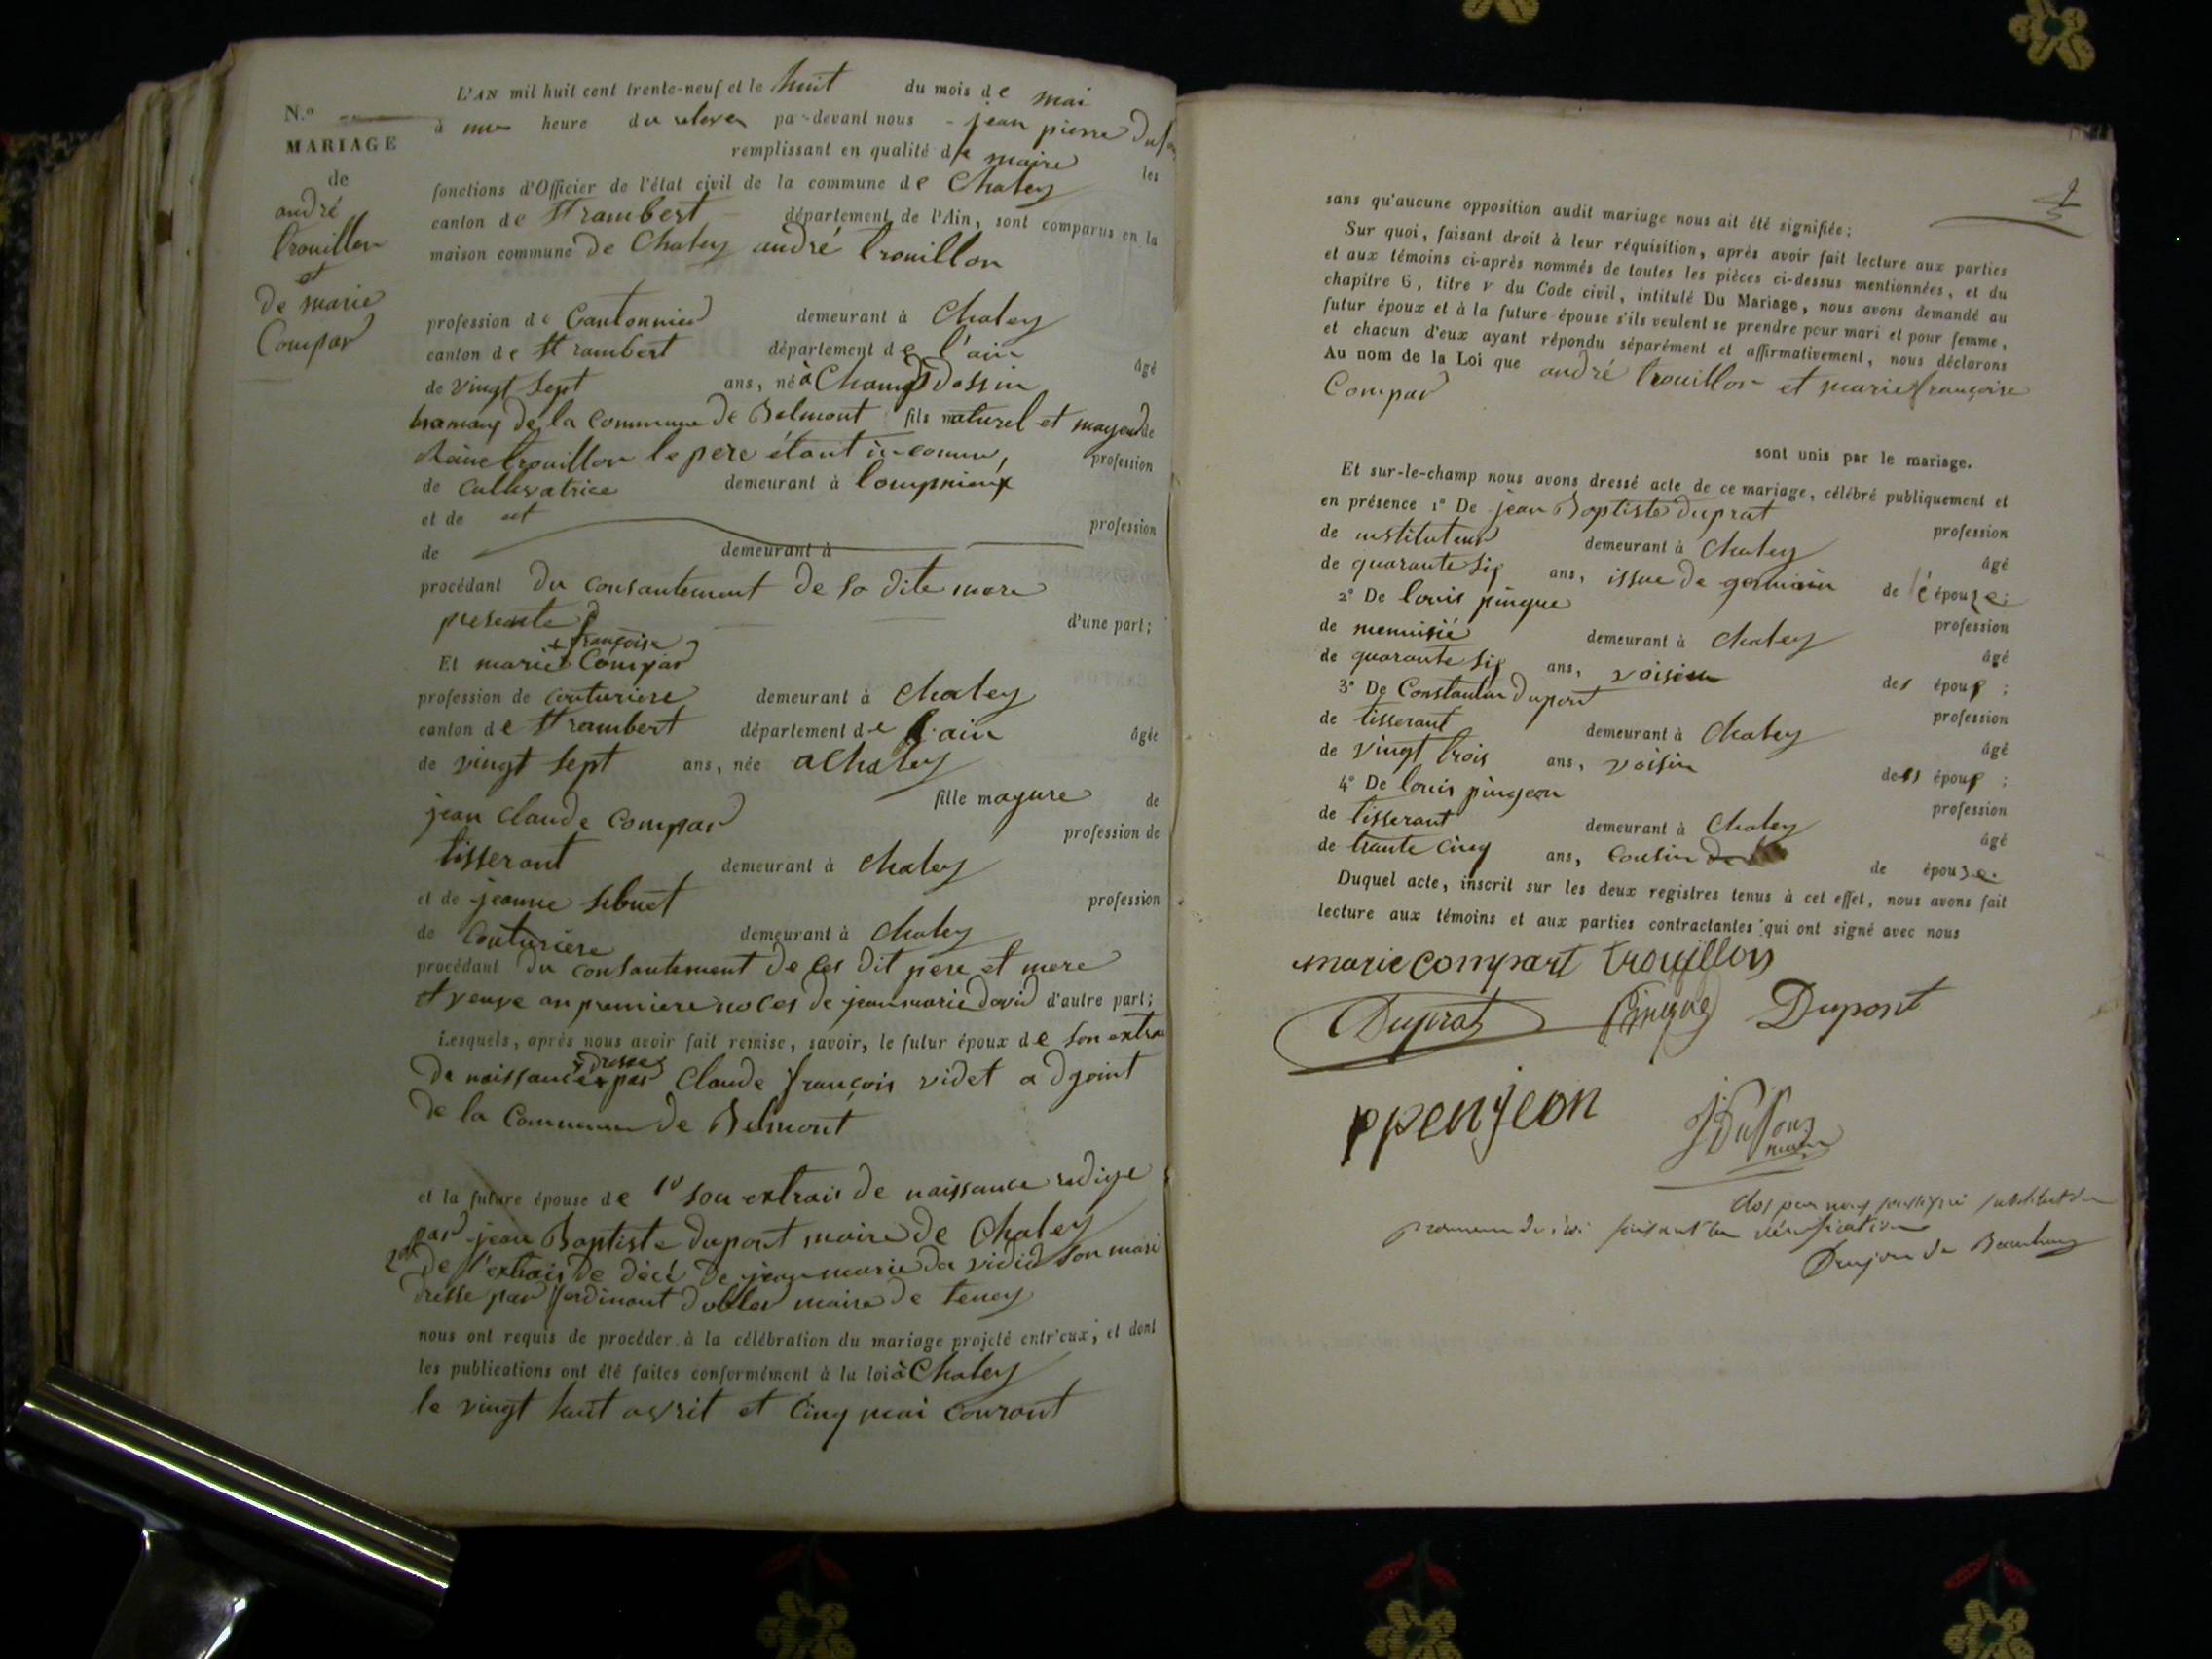 N.º
MARIAGE
de
andré
trouillon
et
de marie
Compar
L'AN mil huit cent trente-neuf et le huit du mois de mai
à une heure du pa-devant nous jean pierre
remplissant en qualité de maire les
fonctions d'Officier de l'état civil de la commune de Chaley
canton de St rambert département de l'Ain, sont comparus en la
maison commune de Chaley andré trouillon
profession de Cantonnier demeurant à Chaley
canton de St rambert département de l'ain âgé
de vingt sept ans, né à Champdossin
hamaux de la Commune de Belmont fils naturel et mageur de
Reine trouillon le père étant inconnu, profession
de cultivatrice demeurant à lompnieux
et de et profession
de demeurant à
procédant du consantement de sa dite mere
presente d'une part;
+ françoise
Et marie + Compar
profession de couturiere demeurant à Chaley
canton de St rambert département de l'ain âgée
de vingt sept ans, née a Chaley
fille mageure de
jean claude Compar profession de
tisserant demeurant à Chaley
et de jeanne sibuet profession
de Couturiere demeurant à Chaley
procédant du consantement de ces dit pere et mere
et veuve an premiere noces de jean marie david d'autre part;
Lesquels, après nous avoir fait remise, savoir, le futur époux de son extrai
+ dresse
de naissance + par Claude françois videt adgoint
de la Commune de Belmont
et la future épouse de 1º son extrait de naissance redige
par jean Baptiste dupont maire de Chaley
2º de l'extrais de décé de jean marie david son mari
dresse par ferdinant maire de tenay
nous ont requis de procéder à la célébration du mariage projeté entr'eux, et dont
les publications ont été faites conformément à la loi à Chaley
le vingt huit avrit et cinq mai courant
sans qu'aucune opposition audit mariage nous ait été signifiée;
Sur quoi, faisant droit à leur réquisition, après avoir fait lecture aux parties
et aux témoins ci-après nommés de toutes les pièces ci-dessus mentionnées, et du
chapitre 6, titre v du Code civil, intitulé Du Mariage, nous avons demandé au
futur époux et à la future épouse s'ils veulent se prendre pour mari et pour femme,
et chacun d'eux ayant répondu séparément et affirmativement, nous déclarons
Au nom de la Loi que andré trouillon et marie françoise
Compar
sont unis par le mariage.
Et sur-le-champ nous avons dressé acte de ce mariage, célébré publiquement et
en présence 1º De jean Baptiste duprat
profession
de instituteur demeurant à Chaley
âgé
de quarante six ans, issue de germain de l'épouze;
2º De louis pingue
profession
de menuisié demeurant à Chaley
âgé
de quarante six ans, voisin des époux;
3º De Constantin dupont
profession
de tisserant demeurant à Chaley
âgé
de vingt trois ans, voisin des époux;
4º De louis pingeon
profession
de tisserant demeurant à Chaley
âgé
de trante cinq ans, cousin de
de épouse.
Duquel acte, inscrit sur les deux registres tenus à cet effet, nous avons fait
lecture aux témoins et aux parties contractantes qui ont signé avec nous
marie compart trouillon
Duprat Pingue Dupont
ppenjeon
maire
Clos par nous soussigné substitut du
procureur du roi faisant la vérification